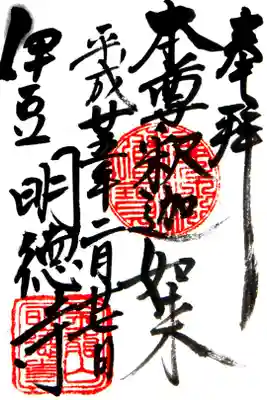 奉拝
本尊釈迦如来
平成廿五年二月十七日
伊豆
明徳寺